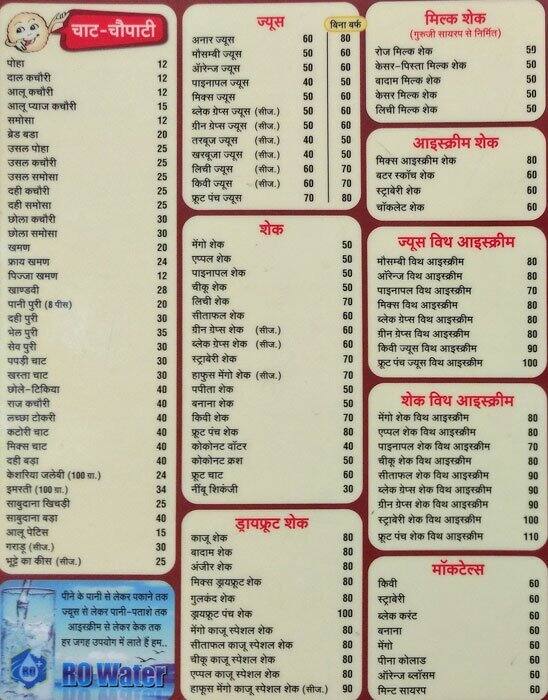 चाट-चौपाटी
पोहा 12
दाल कचौरी 12
आलू कचौरी 12
आलू प्याज कचौरी 15
समोसा 12
ब्रेड बडा 20
उसल पोहा 25
उसल कचौरी 25
उसल समोसा 25
दही कचौरी 25
दही समोसा 25
छोला कचौरी 30
छोला समोसा 30
खमण 20
फ्राय खमण 24
पिज्जा खमण 12
खाण्डवी 28
पानी पुरी (8 पीस) 20
दही पुरी 30
भेल पुरी 35
सेव पुरी 30
पपड़ी चाट 30
खस्ता चाट 30
छोले-टिकिया 40
राज कचौरी 40
लच्छा टोकरी 40
कटोरी चाट 40
मिक्स चाट 40
दही बड़ा 40
केशरिया जलेबी (100 ग्रा.) 24
इमरती (100 ग्रा.) 34
साबुदाना खिचड़ी 25
साबुदाना बड़ा 40
आलू पेटिस 15
गराडू (सीज.) 30
भूट्टे का कीस (सीज.) 25
पीने के पानी से लेकर पकाने तक
ज्यूस से लेकर पानी-पताशे तक
आइस्क्रीम से लेकर केक तक
हर जगह उपयोग में लाते हैं हम..
RO
RO Water
ज्यूस
बिना बर्फ
अनार ज्यूस 60 80
मौसम्बी ज्यूस 50 60
ऑरेन्ज ज्यूस 50 60
पाइनापल ज्यूस 40 50
मिक्स ज्यूस 50 60
ब्लेक ग्रेप्स ज्यूस (सीज.) 50 60
ग्रीन ग्रेप्स ज्यूस (सीज.) 50 60
तरबूज ज्यूस (सीज.) 40 50
खरबूजा ज्यूस (सीज.) 40 50
लिची ज्यूस (सीज.) 60 70
किवी ज्यूस (सीज.) 60 70
फ्रूट पंच ज्यूस 70 80
शेक
मेंगो शेक 50
एप्पल शेक 50
पाइनापल शेक 50
चीकू शेक 50
लिची शेक 70
सीताफल शेक 60
ग्रीन ग्रेप्स शेक (सीज.) 60
ब्लेक ग्रेप्स शेक (सीज.) 60
स्ट्राबेरी शेक 70
हाफुस मेंगो शेक (सीज.) 70
पपीता शेक 50
बनाना शेक 50
किवी शेक 70
फ्रूट पंच शेक 80
कोकोनट वॉटर 40
कोकोनट क्रश 50
फ्रूट चाट 60
नींबू शिकंजी 30
ड्रायफ्रूट शेक
काजू शेक 80
बादाम शेक 80
अंजीर शेक 80
मिक्स ड्रायफ्रूट शेक 80
गुलकंद शेक 80
ड्रायफ्रूट पंच शेक 100
मेंगो काजू स्पेशल शेक 80
सीताफल काजू स्पेशल शेक 80
चीकू काजू स्पेशल शेक 80
एप्पल काजू स्पेशल शेक 80
हाफूस मेंगो काजू स्पेशल शेक (सीज.) 90
मिल्क शेक
(गुरूजी सायरप से निर्मित)
रोज मिल्क शेक 50
केसर-पिस्ता मिल्क शेक 50
बादाम मिल्क शेक 50
केसर मिल्क शेक 50
लिची मिल्क शेक 50
आइस्क्रीम शेक
मिक्स आइस्क्रीम शेक 80
बटर स्कॉच शेक 60
स्ट्राबेरी शेक 60
चॉकलेट शेक 60
ज्यूस विथ आइस्क्रीम
मौसम्बी विथ आइस्क्रीम 80
ऑरेन्ज विथ आइस्क्रीम 80
पाइनापल विथ आइस्क्रीम 70
मिक्स विथ आइस्क्रीम 80
ब्लेक ग्रेप्स विथ आइस्क्रीम 80
ग्रीन ग्रेप्स विथ आइस्क्रीम 80
किवी ज्यूस विथ आइस्क्रीम 90
फ्रूट पंच ज्यूस विथ आइस्क्रीम 100
शेक विथ आइस्क्रीम
मेंगो शेक विथ आइस्क्रीम 80
एप्पल शेक विथ आइस्क्रीम 80
पाइनापल शेक विथ आइस्क्रीम 70
चीकू शेक विथ आइस्क्रीम 80
सीताफल शेक विथ आइस्क्रीम 90
ब्लेक ग्रेप्स शेक विथ आइस्क्रीम 90
ग्रीन ग्रेप्स शेक विथ आइस्क्रीम 90
स्ट्राबेरी शेक विथ आइस्क्रीम 100
फ्रूट पंच शेक विथ आइस्क्रीम 110
मॉकटेल्स
किवी 60
स्ट्राबेरी 60
ब्लेक करंट 60
बनाना 60
मेंगो 60
पीना कोलाड 60
ऑरेन्ज ब्लॉसम 60
मिन्ट सायरस 60